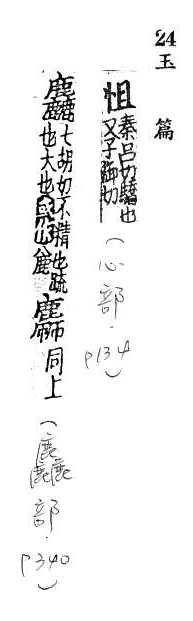 24
玉篇
怚秦呂切驕也
又子御切
（心部．P134）
麤七胡切不精也疏
也大也
同上
（麤部．P340）